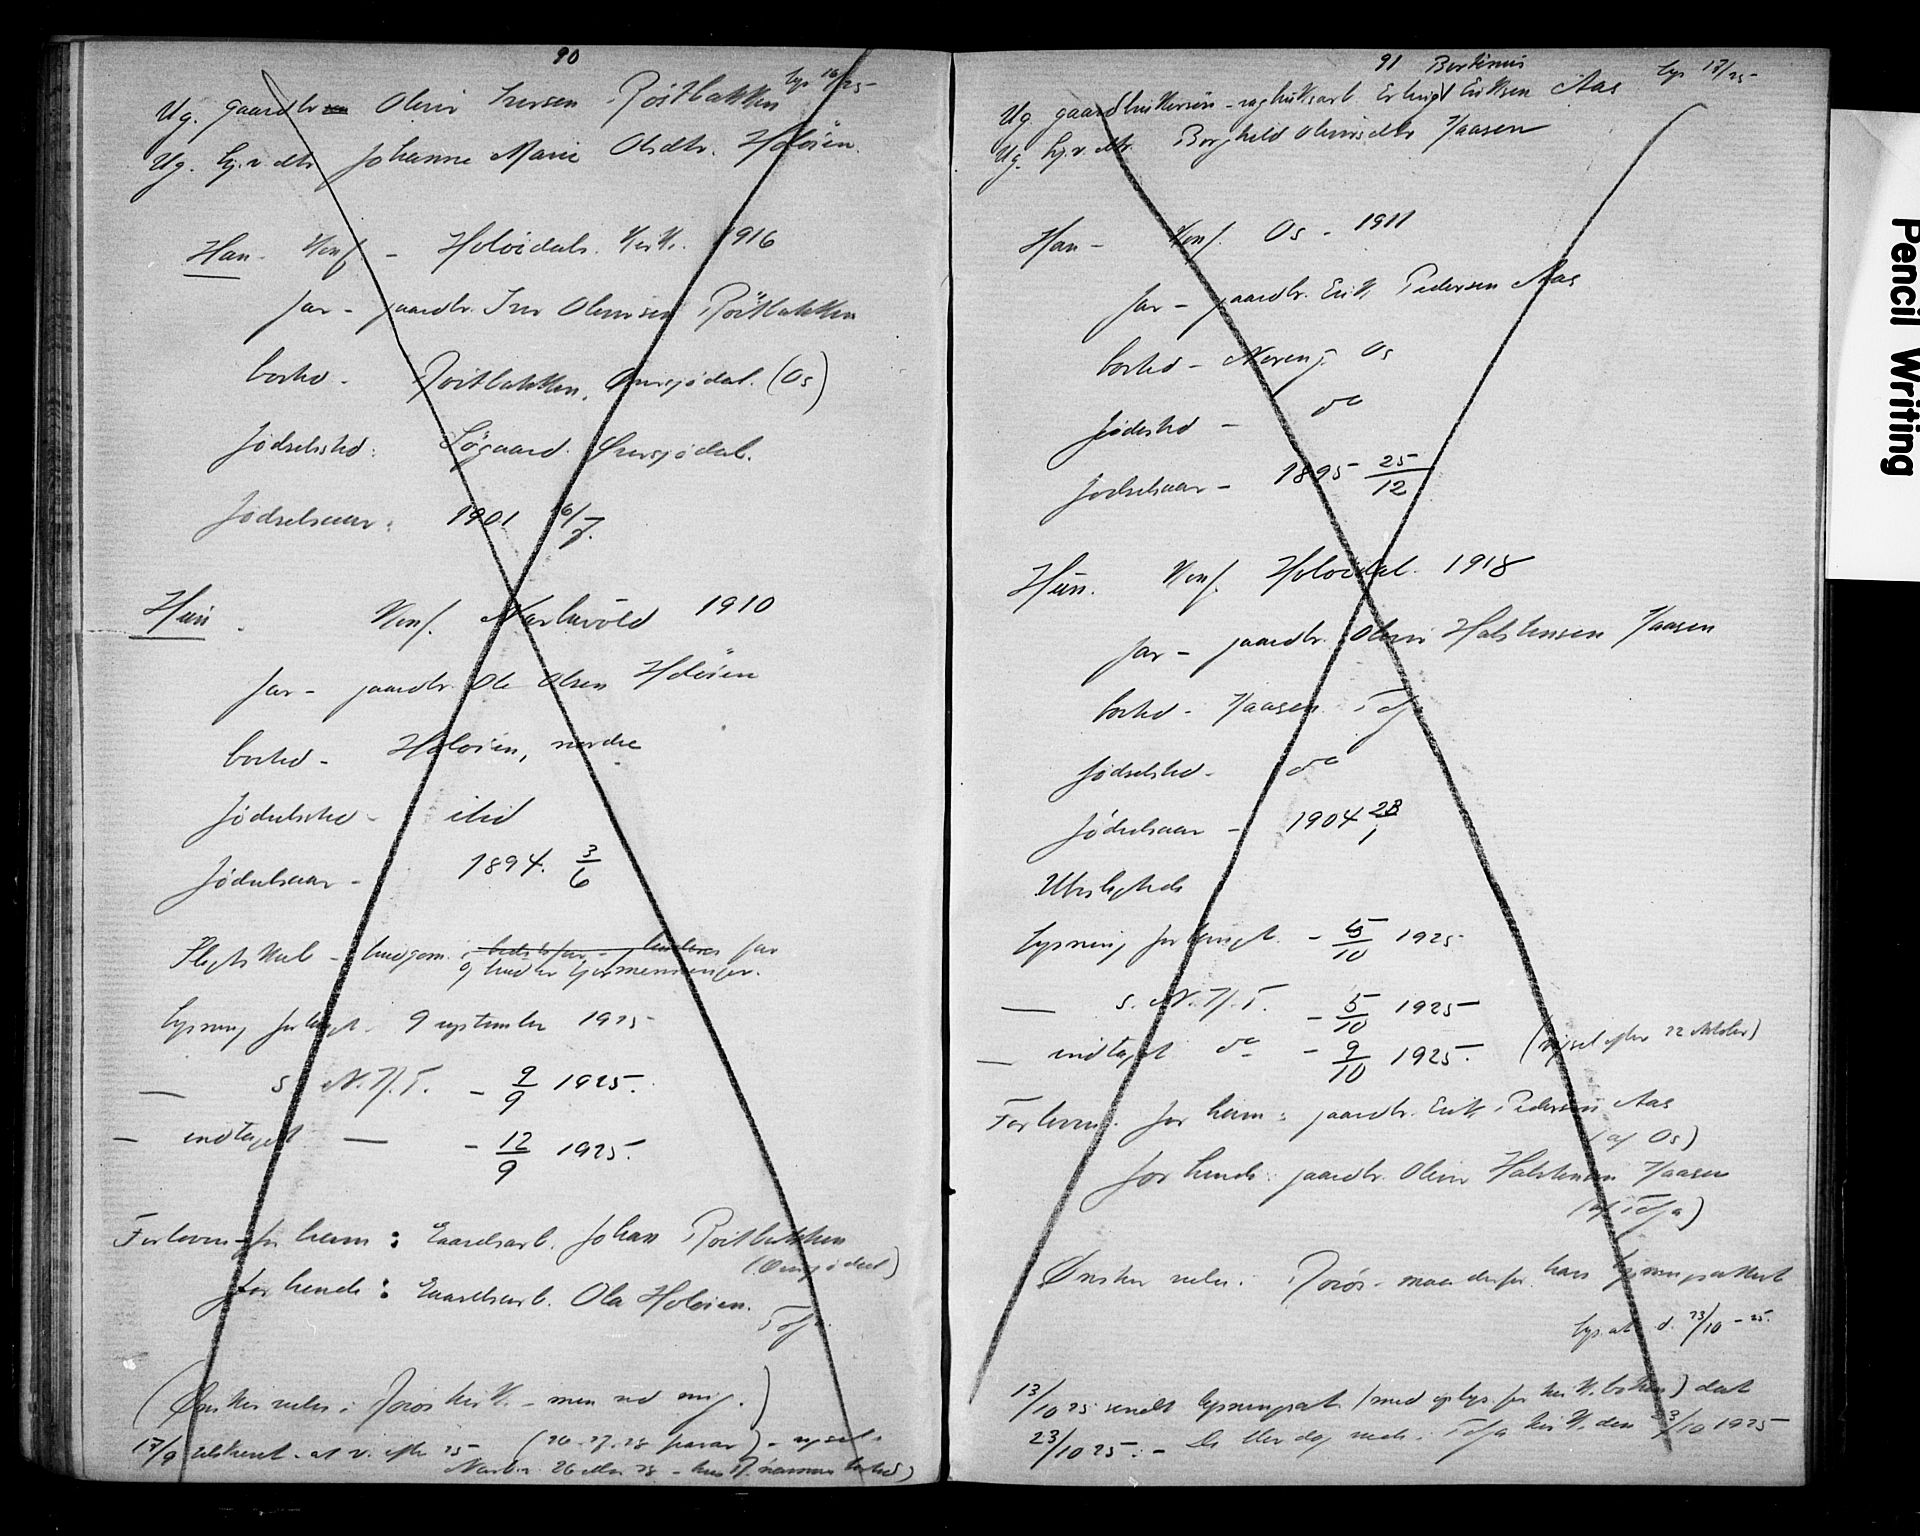 90
lys 16/25
Ug. gaardbr Oliver Iversen Röstbakken
Ug. hj.v. dtr. Johanne Marie Olsdtr. Holöien.
Han - Konf - Holöidals Kirk. 1916
far - gaardbr. Iver Olversen Röstbakken
bosted - Röitbakken, Øversjødal. (Os)
fødselssted: Søgaard. Øversjødal.
fødselsaar: 1901 16/7.
Hun. Konf. Narbuvold 1910
far - gaardbr. Ole Olsen Holöien
bosted - Holöien, nordre
fødselssted - ibid
fødselsaar - 1894. 3/6
Slegtskab - brudgom. far
og brud er
lysning forlangt - 9 september 1925
— s. N.H.T. - 9/9 1925.
— indtaget — - 12/9 1925.
Forlover for ham: Gaardsarb. Johan Röitbakken
(Øversjødal)
for hende: Gaardsarb. Ola Holöien.
Tolga
(Ønsker vielse i Røros kirk. - men ved mig.)
17/9 at v. efter 25 (26-27-28 - 
91 Bertinius
lys 17/25
Ug. gaardbrukersön - sagbruksarb. Erling Eriksen Aas
Ug. hj.v. dtr. Borghild Oliversdtr Vaasen
Han - Konf. Os - 1911
far - gaardbr. Erik Pedersen Aas
bosted - Noreng Os
födested - do
fødselsaar - 1895 25/12
Hun. Konf. Holöidal. 1918
far - gaardbr. Oliver Halstensen Vaasen
bosted - Vaasen Tolga
fødselssted - do
fødselsaar - 1904 28/1
Ubeslegtede
lysning forlangt. - 5/10 1925
— s. N.H.T. - 5/10 1925
— indtaget do - 9/10 1925. (vigsel efter 22 oktober)
Forlover. for ham: gaardbr. Erik Pedersen Aas
(af Os)
for hende: gaardbr. Oliver Halstensen Vaasen
(af Tolga)
Ønsker vielse i Røros - maa derfor have lysningsattest
lys.at d. 23/10 - 25.
13/10 25 sendt lysningsat. (med oplys. for kirk.boken) dat
23/10 25. - De blev dog viede i Tolga kirk. den 23/10 1925
Pencil Writing